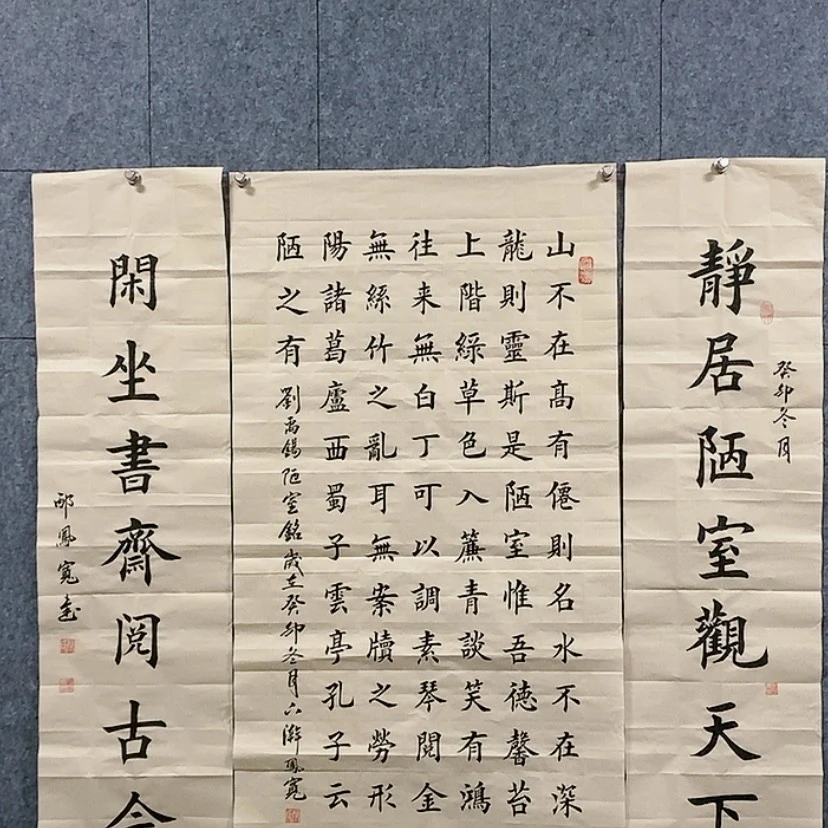 靜居陋室觀天下
癸卯冬月
山不在髙有僊則名水不在深
龍則靈斯是陋室惟吾徳馨苔
上階綠草色入簾青談笑有鴻
往来無白丁可以調素琴閱金
無絲竹之亂耳無案牘之勞形
陽諸葛廬西蜀子雲亭孔子云
陋之有
劉禹錫陋室銘歲在癸卯冬月鳳寬
閑坐書齋閱古今
鳳寬